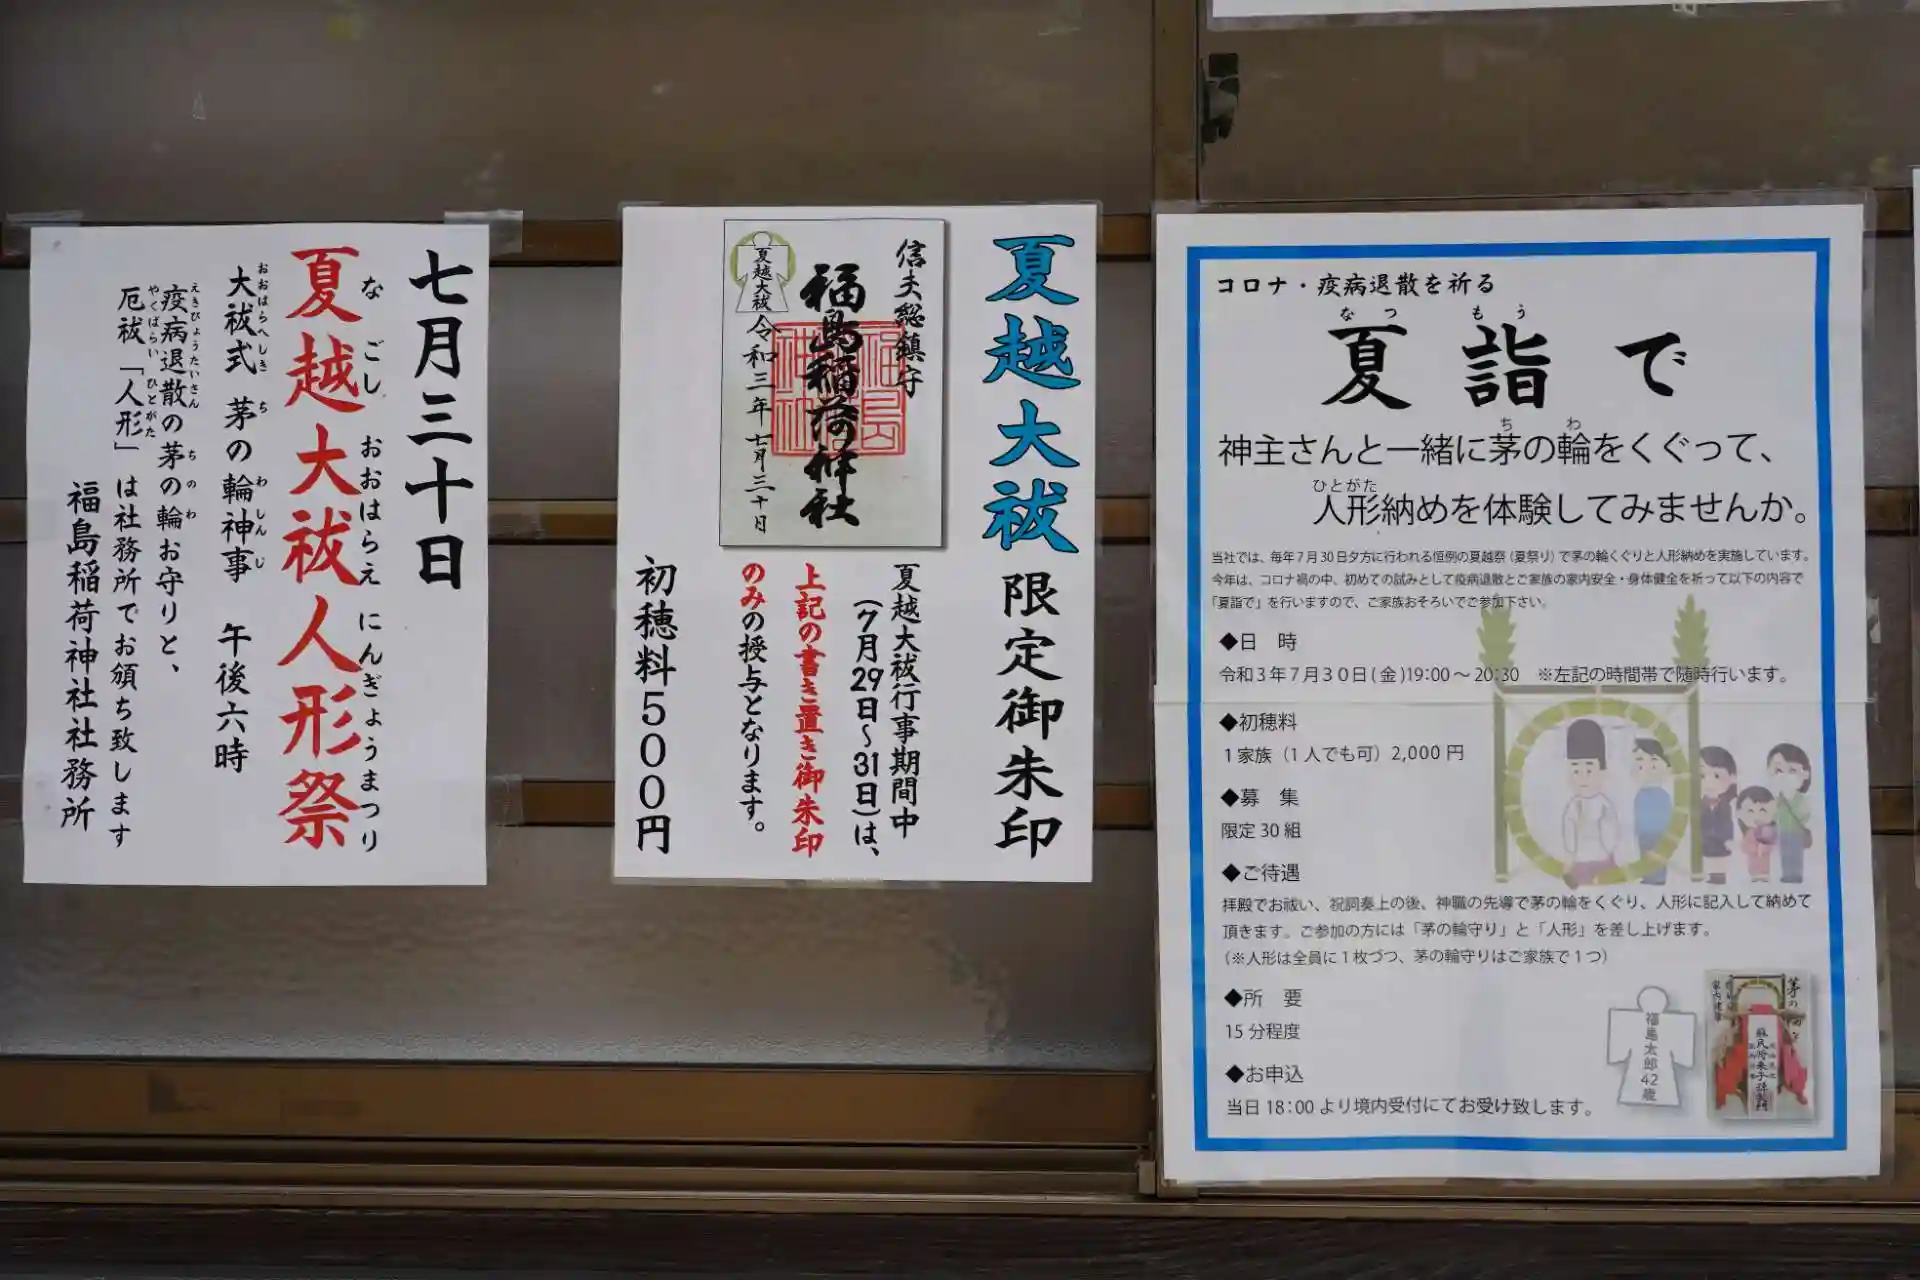 七月三十日
夏越大祓人形祭
なごし おおはらえ にんぎょうまつり
大祓式 茅の輪神事 午後六時
おおはらへしき ち わしんじ
疫病退散の茅の輪お守りと、
えきびょうたいさん ちのわ
厄祓「人形」は社務所でお頒ち致します
やくばらい ひとがた
福島稲荷神社社務所
夏越大祓 限定御朱印
信夫総鎮守
福島稲荷神社
夏越大祓
令和三年 七月三十日
夏越大祓行事期間中
(7月29日~31日)は、
上記の書き置き御朱印
のみの授与となります。
初穂料500円
コロナ・疫病退散を祈る
なつ もう
夏詣で
ち わ
神主さんと一緒に茅の輪をくぐって、
ひとがた
人形納めを体験してみませんか。
当社では、毎年7月30日夕方に行われる恒例の夏越祭(夏祭り)で茅の輪くぐりと人形納めを実施しています。
今年は、コロナ禍の中、初めての試みとして疫病退散とご家族の家内安全・身体健全を祈って以下の内容で
「夏詣で」を行いますので、ご家族おそろいでご参加下さい。
◆日 時
令和3年7月30日(金)19:00~20:30 ※左記の時間帯で随時行います。
◆初穂料
1家族(1人でも可)2,000円
◆募 集
限定30組
◆ご待遇
拝殿でお祓い、祝詞奏上の後、神職の先導で茅の輪をくぐり、人形に記入して納めて
頂きます。ご参加の方には「茅の輪守り」と「人形」を差し上げます。
(※人形は全員に1枚づつ、茅の輪守りはご家族で1つ)
◆所 要
15分程度
◆お申込
当日18:00より境内受付にてお受け致します。
福島太郎42歳